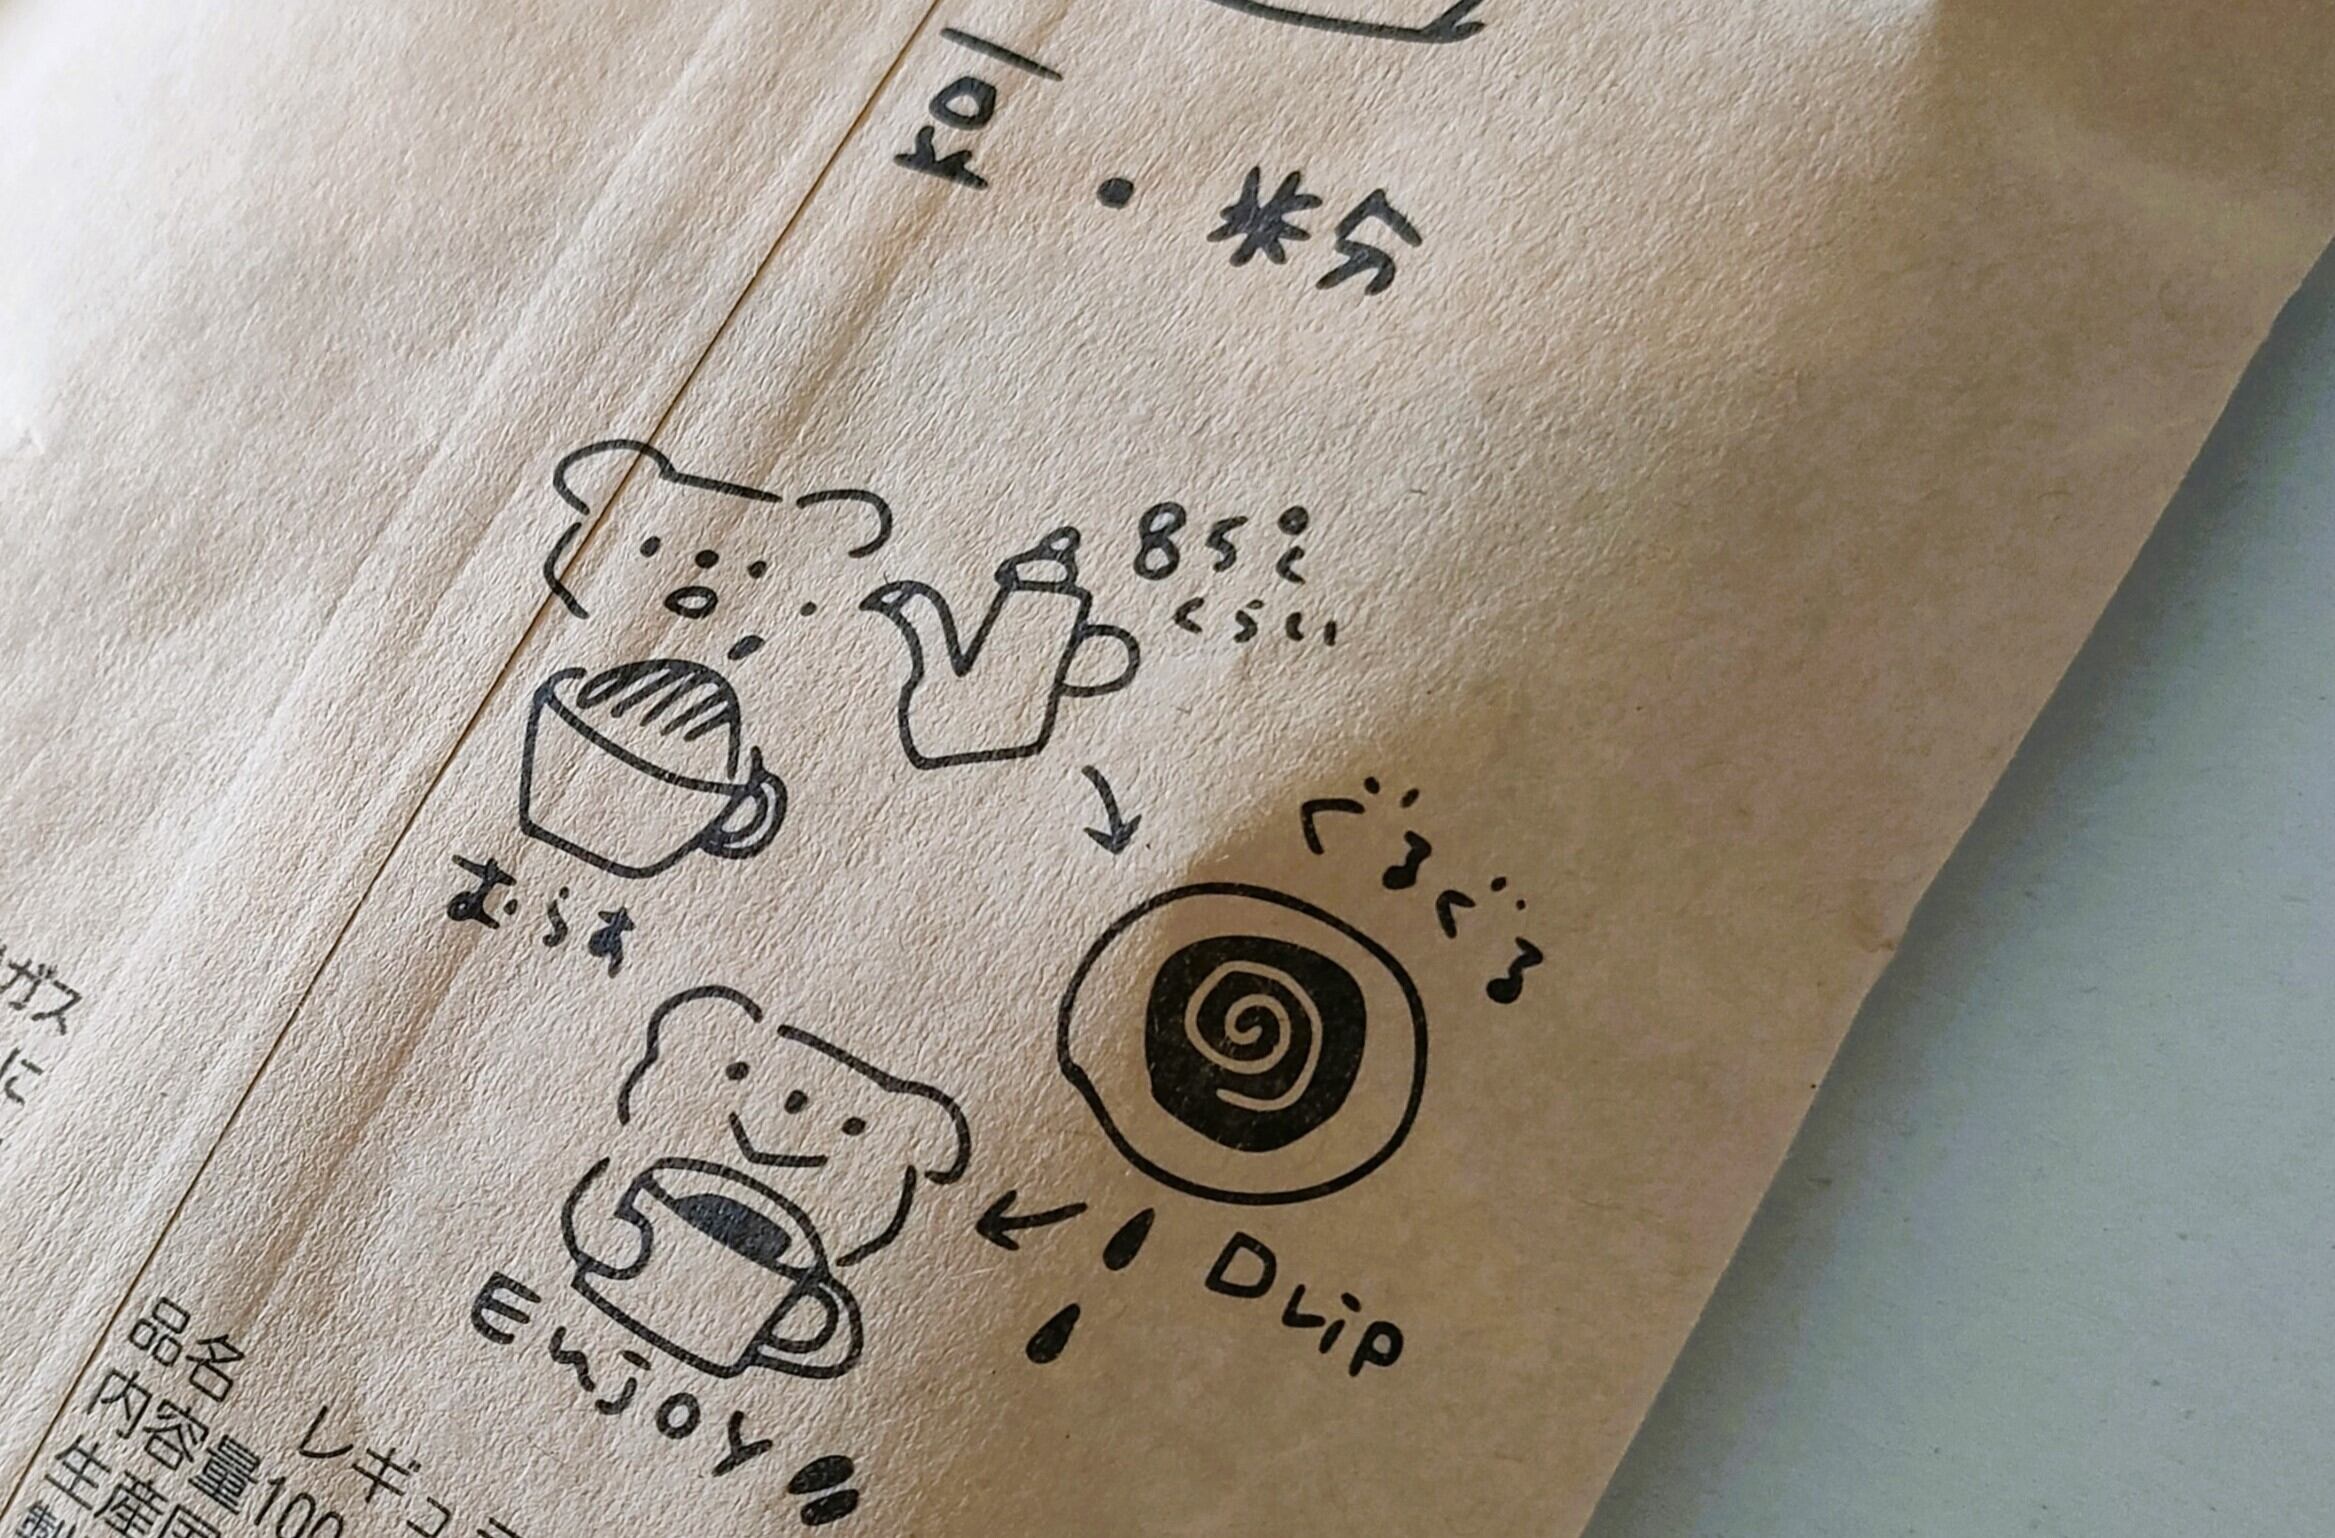 豆・粉
85℃
くらい
むらす
ぐるぐる
Drip
Enjoy
ガス
に
品名 レギュ
内容量100
生産国